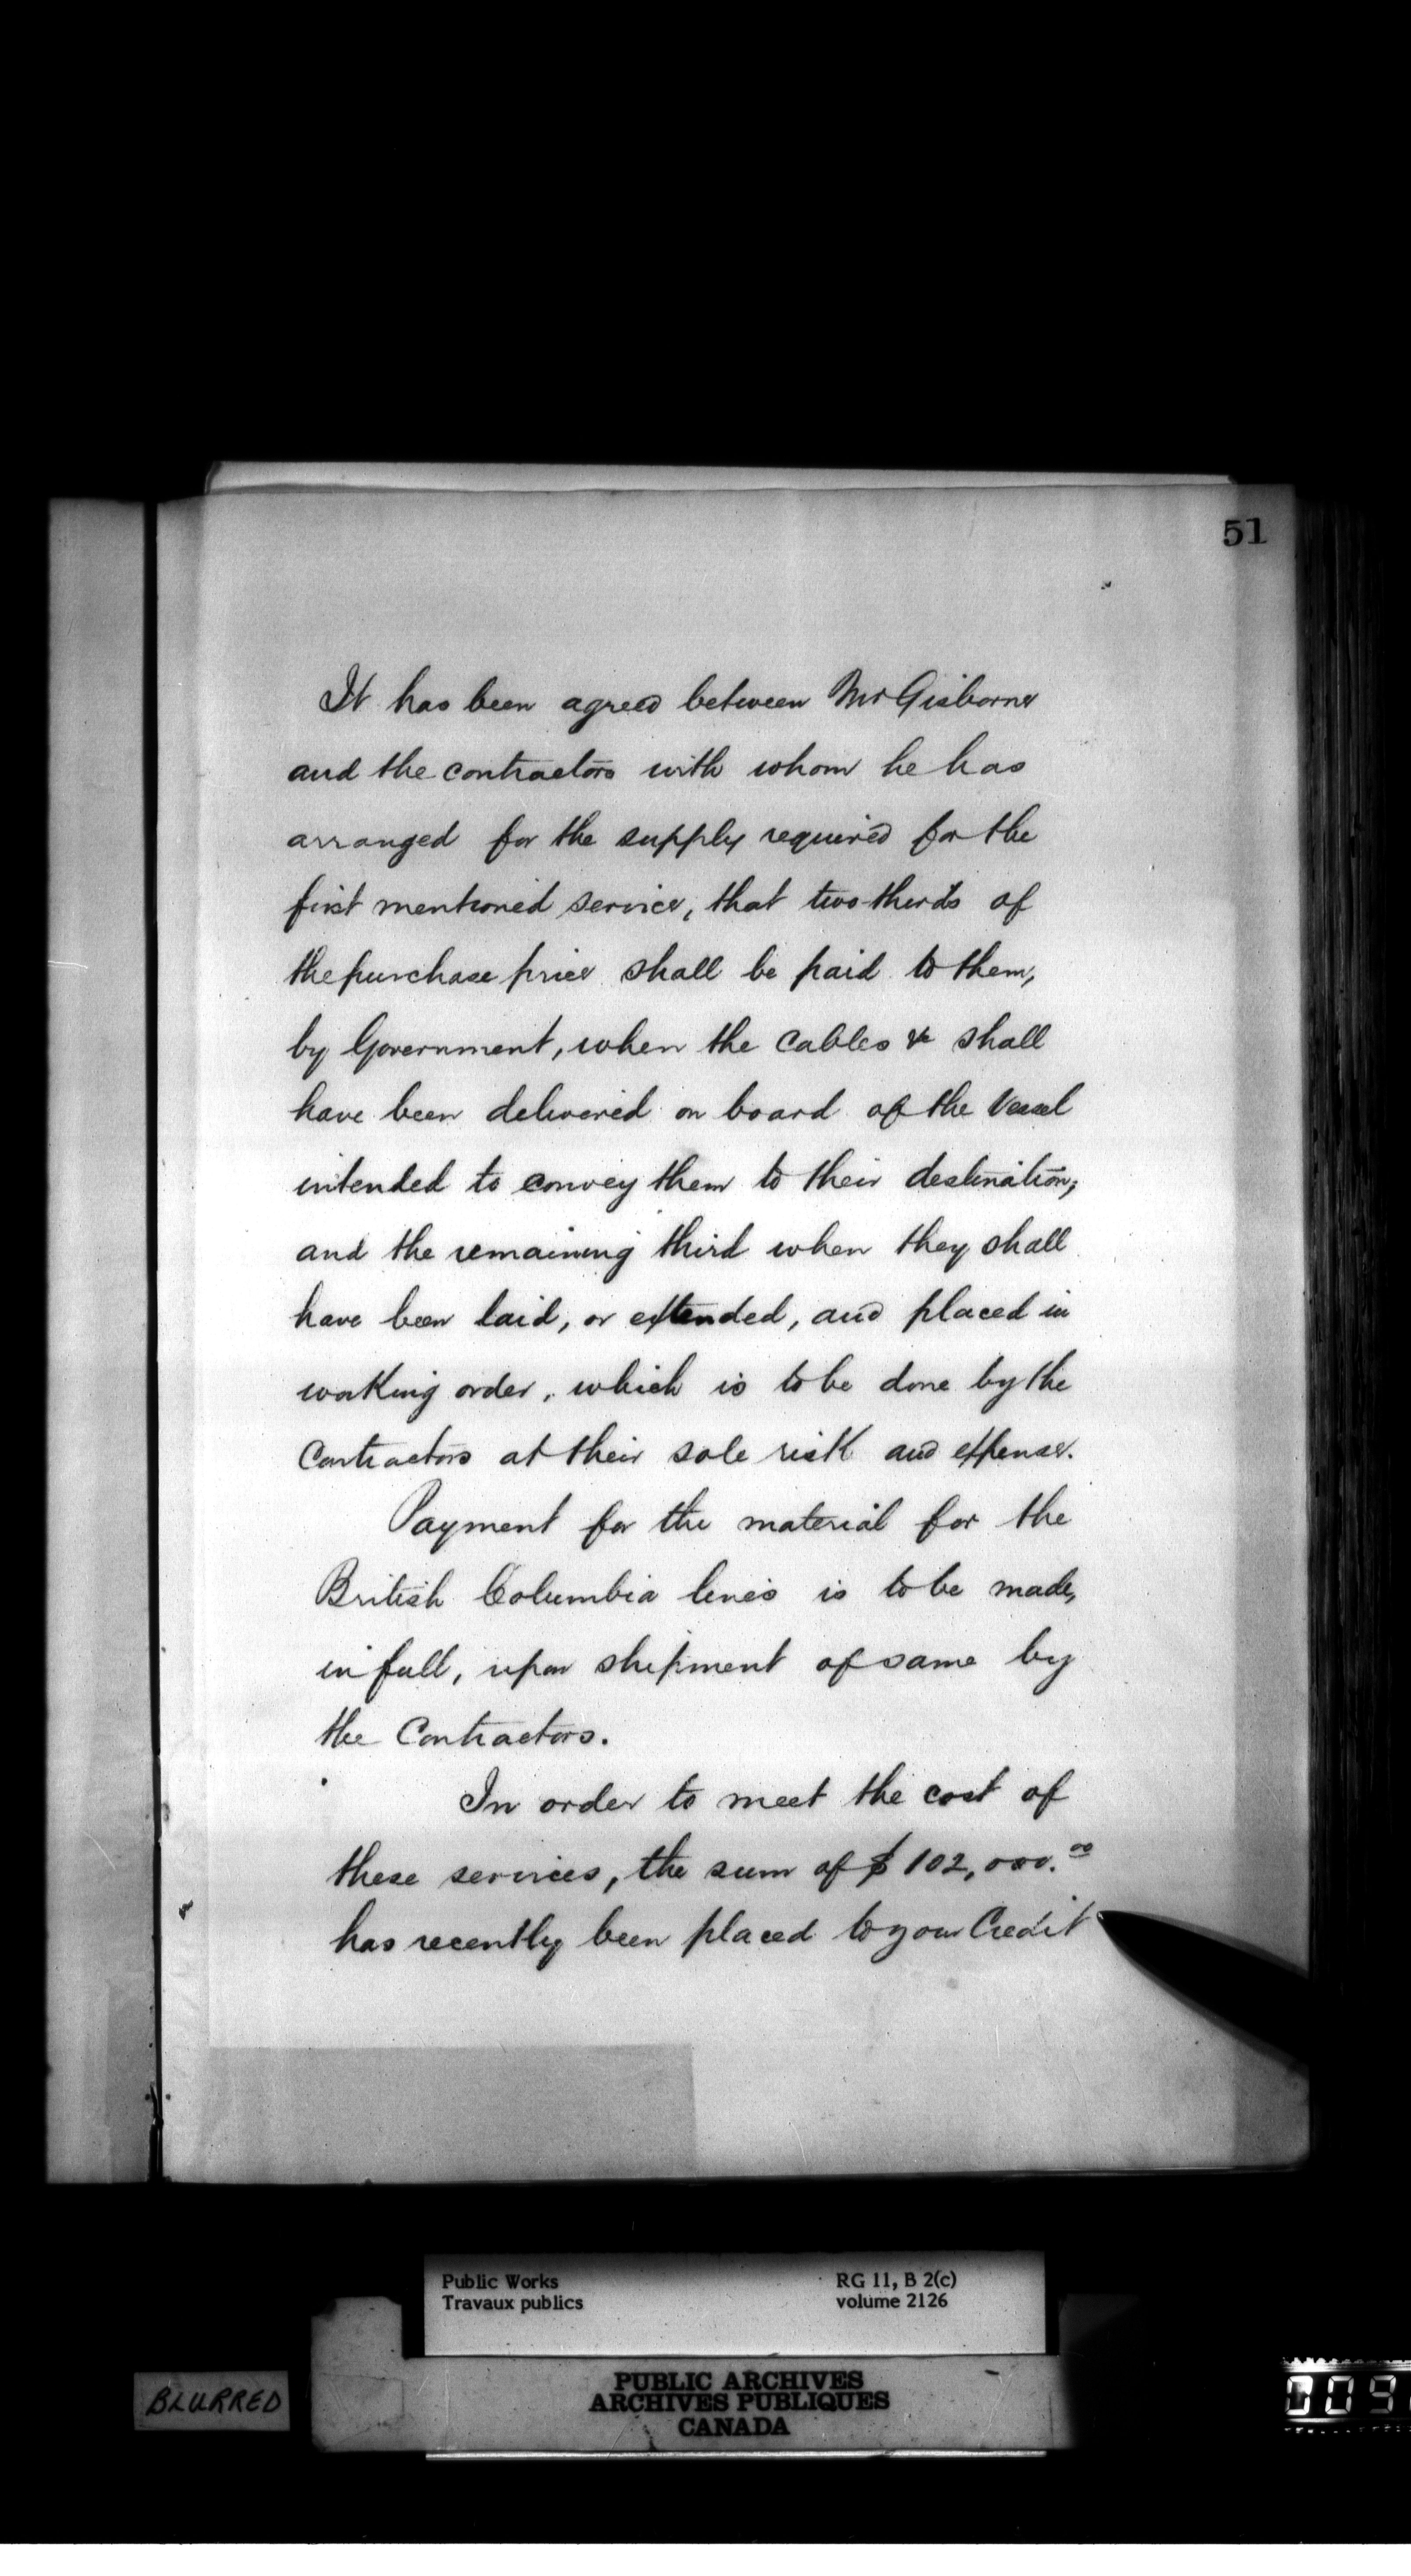 51
It has been agreed between Mr Gisborne
and the contractors with whom he has
arranged for the supply required for the
first mentioned service, that two-thirds of
the purchase price shall be paid to them,
by Government, when the cables &c shall
have been delivered on board of the Vessel
intended to convey them to their destination;
and the remaining third when they shall
have been laid, or extended, and placed in
working order, which is to be done by the
Contractors at their sole risk and expense.
Payment for the material for the
British Columbia lines is to be made,
in full, upon shipment of same by
the Contractors.
In order to meet the cost of
these services, the sum of $102,000.00
has recently been placed to your Credit
Public Works RG 11, B 2(c)
Travaux publics volume 2126
PUBLIC ARCHIVES
ARCHIVES PUBLIQUES
CANADA
BLURRED